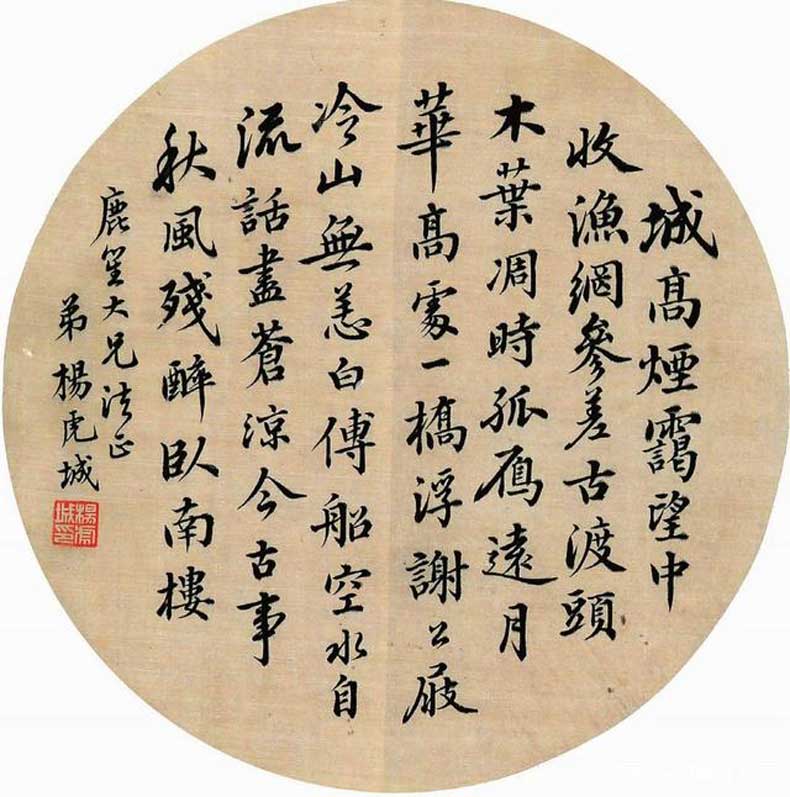 城高煙靄望中
收漁網參差古渡頭
木葉凋時孤鴈遠月
華高處一橋浮謝公屐
冷山無恙白傅船空水自
流話盡蒼涼今古事
秋風殘醉臥南樓
鹿笙大兄法正
弟楊虎城
楊虎城印